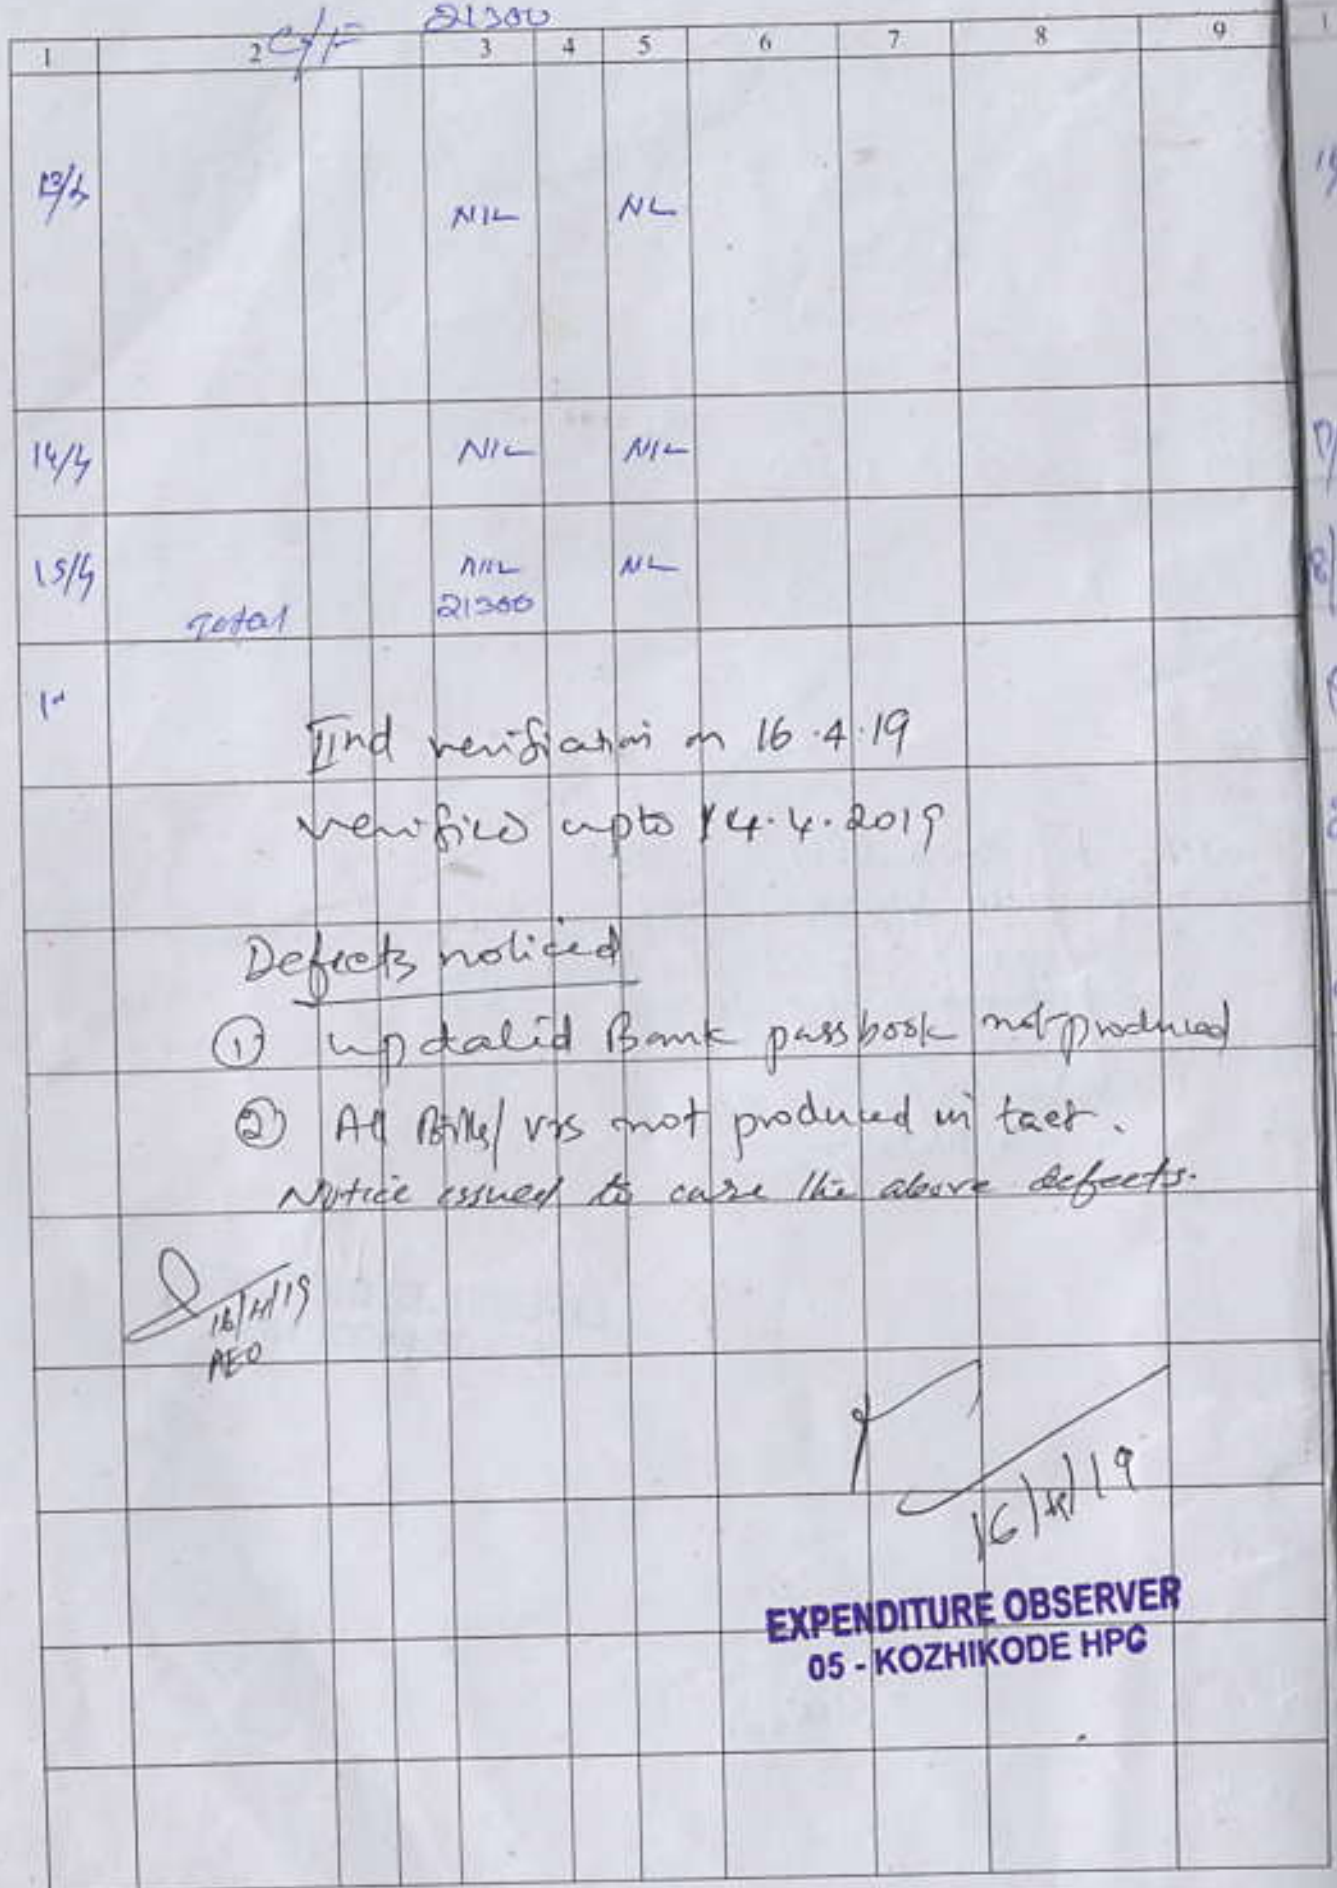 C/F 21300
1 2 3 4 5 6 7 8 9
13/4 NIL NIL
14/4 NIL NIL
15/4 NIL NIL
Total 21300
IInd verification on 16.4.19
verified upto 14.4.2019
Defects noticed
① updated Bank passbook not produced
② All Bills/ vrs not produced in tact.
Notice issued to cure the above defects.
16/4/19
AEO
16/4/19
EXPENDITURE OBSERVER
05 - KOZHIKODE HPC